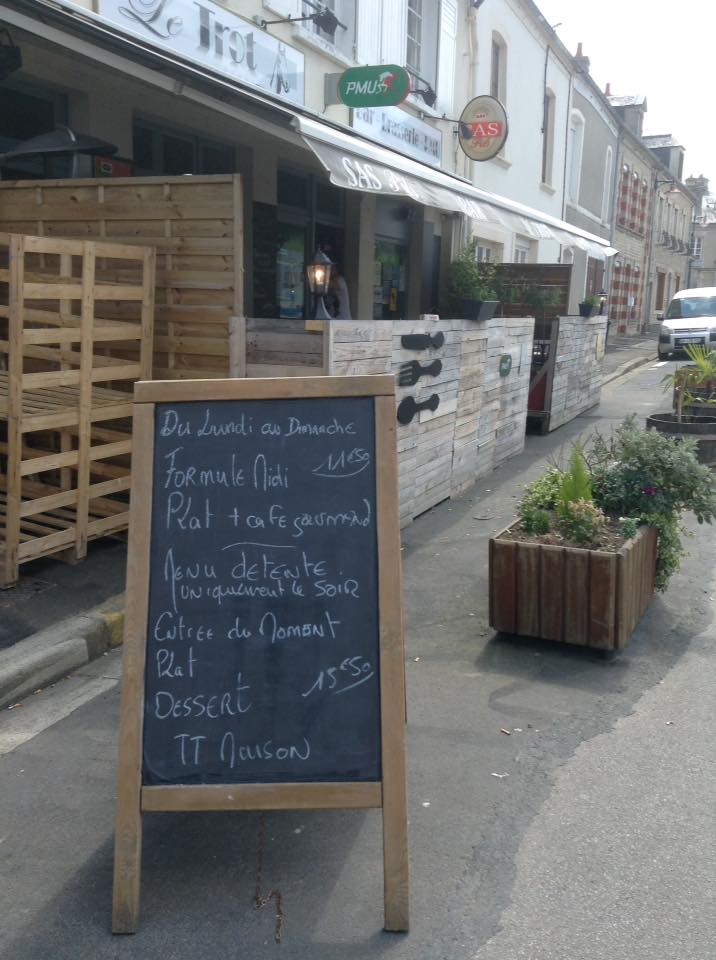 Le Trot
PMU
Bar Brasserie
PAS
SAS
Du Lundi au Dimanche
FORMULE MIDI 11€50
PLAT + CAFE GOURMAND
MENU DETENTE
UNIQUEMENT LE SOIR
ENTREE DU MOMENT
PLAT
DESSERT 15€50
TT MAISON